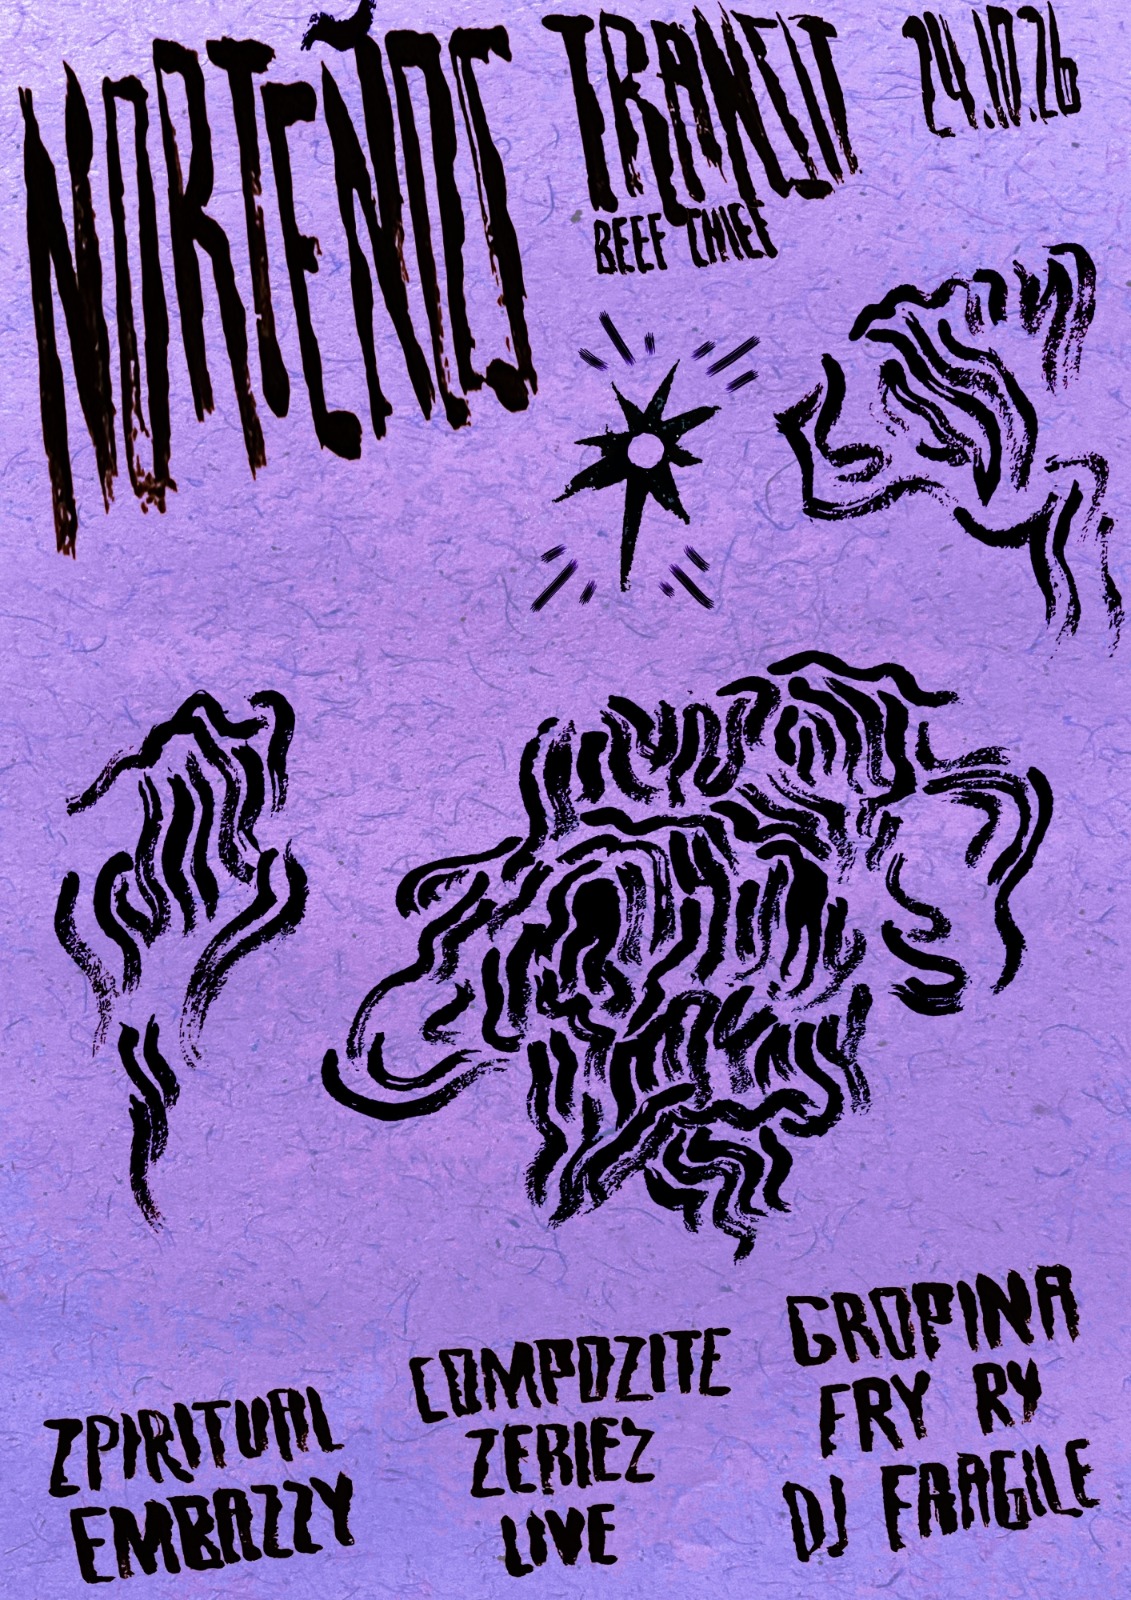 NORTEÑOS
TRANSIT
24.10.26
BEEF THIEF
ZPIRITUAL
EMBAZZY
COMPOZITE
ZERIEZ
LIVE
GROPINA
FRY RY
DJ FRAGILE